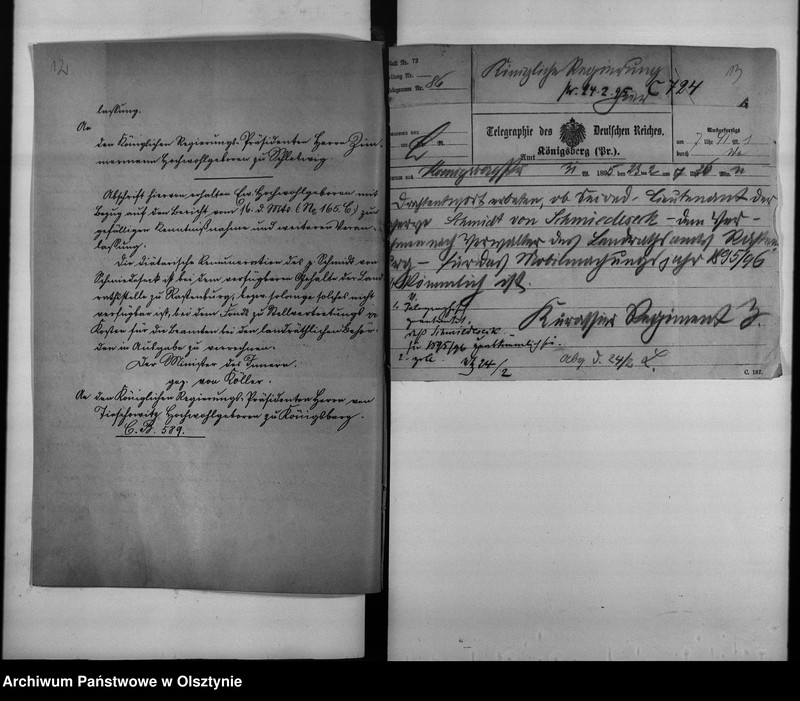 12
lassung.
An
den Königlichen Regierungs-Präsidenten Herrn Zim-
mermann Hochwohlgeboren zu Schleswig.
Abschrift hiervon erhalten Ew. Hochwohlgeboren mit
Bezug auf den Bericht vom 16. d. Mts. (No 165. C.) zur
gefälligen Kenntnißnahme und weiteren Veran-
lassung.
Die diätarische Remuneration des p. Schmidt von
Schmiedeseck ist bei dem verfügbaren Gehalte der Land
rathsstelle zu Rastenburg, bezw. solange solches nicht
verfügbar ist, bei dem Fonds zu Stellvertretungs
Kosten für die Beamten bei den landräthlichen Behör
den in Ausgabe zu verrechnen.
Der Minister des Innern.
gez. von Köller.
An den Königlichen Regierungs-Präsidenten Herrn von
Tieschowitz Hochwohlgeboren zu Königsberg.
C. B. 589.
13
Königliche Regierung
pr. 24.2.95. C 724
hier
Nr. 86
Telegraphie des Deutschen Reiches.
Amt Königsberg (Pr.).
Ausgefertigt
durch
Drahtantwort erbeten, ob Second-Lieutenant der
Reserve Schmidt von Schmiedeseck - den Ver-
nehmen nach Verwalter des Landrathsamts Rasten
burg - für das Mobilmachungsjahr 1895/96
abkömmlich ist.
Kürassier Regiment 3.
1. Telegraphisch
Schmiedeseck
für 1895/96 unabkömmlich ist.
24/2
abg. d. 24/2
C. 187.